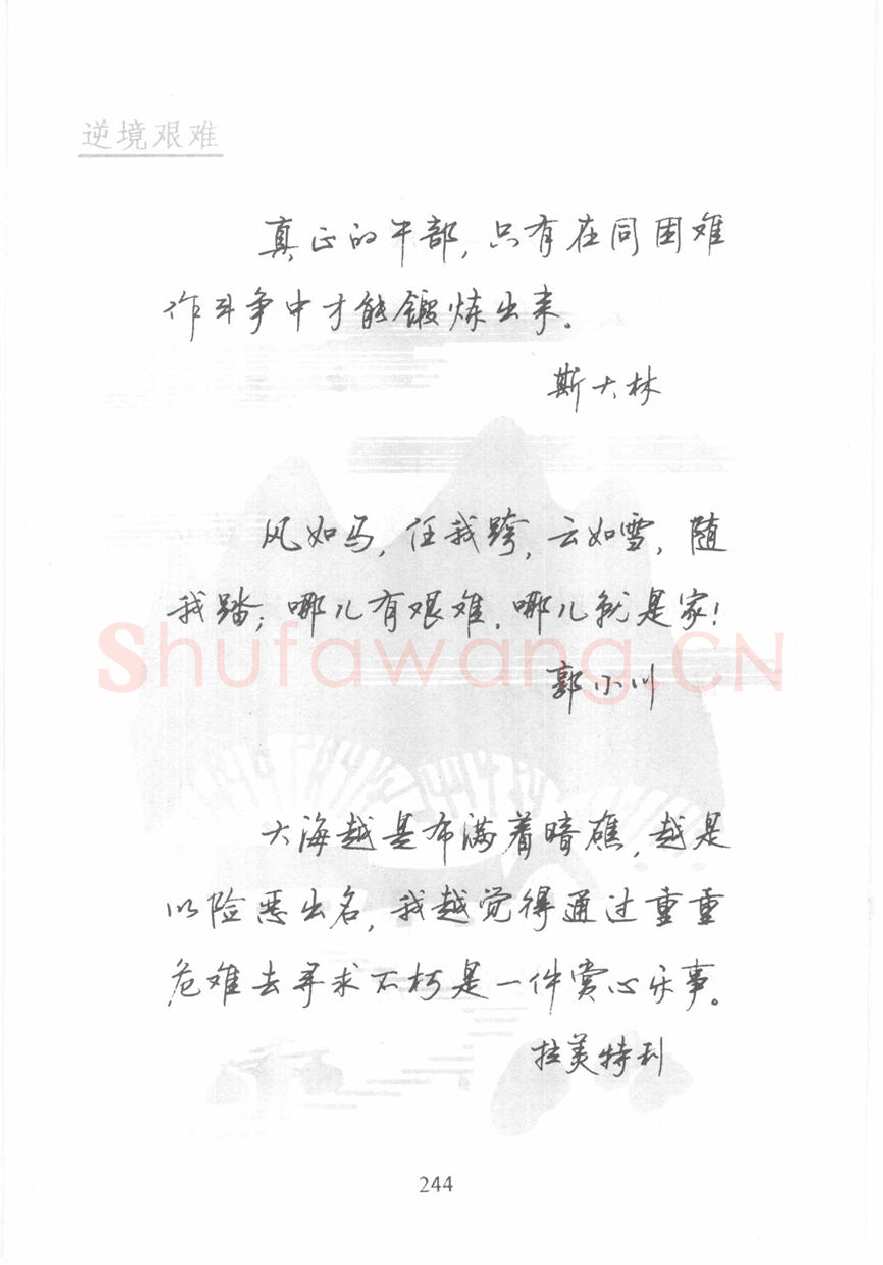 逆境艰难
真正的干部，只有在同困难
作斗争中才能锻炼出来。
斯大林
风如马，任我跨，云如雪，随
我踏；哪儿有艰难，哪儿就是家！
Shufawang.CN
郭小川
大海越是布满着暗礁，越是
以险恶出名，我越觉得通过重重
危难去寻求不朽是一件赏心乐事。
拉美特利
244